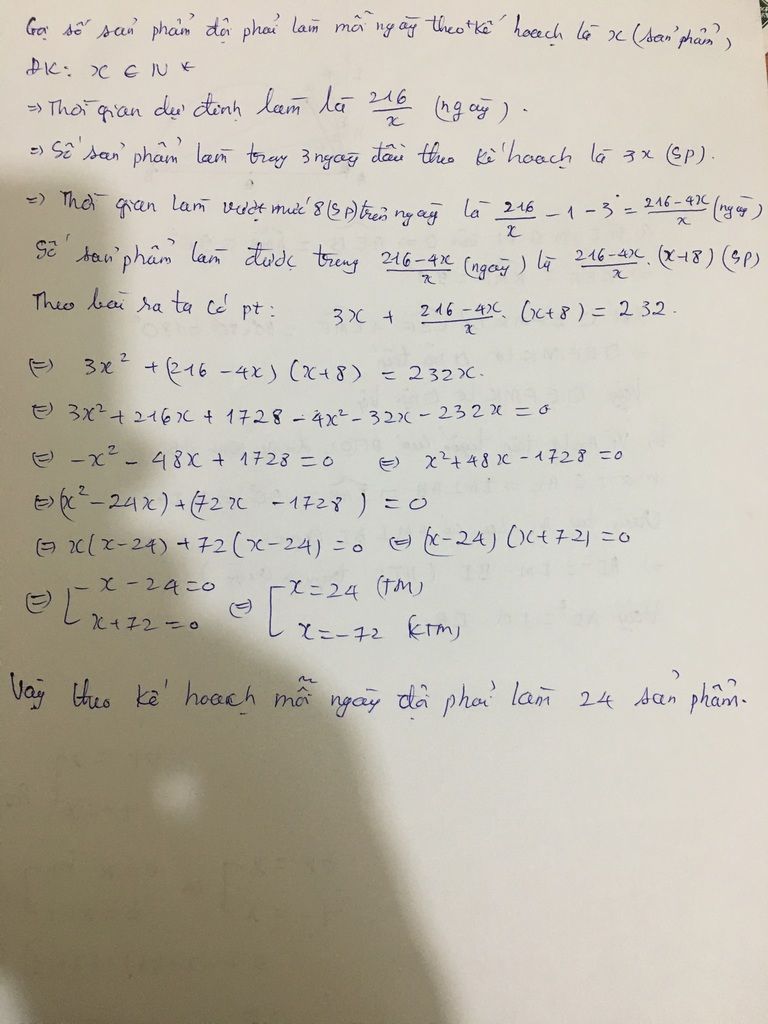 Gọi số sản phẩm đội phải làm mỗi ngày theo kế hoạch là x (sản phẩm)
ĐK: x ∈ N*
=> Thời gian dự định làm là 216/x (ngày).
=> Số sản phẩm làm trong 3 ngày đầu theo kế hoạch là 3x (SP).
=> Thời gian làm vượt mức 8 (SP) trên ngày là 216/x - 1 - 3 = (216-4x)/x (ngày)
Số sản phẩm làm được trong (216-4x)/x (ngày) là (216-4x)/x . (x+8) (SP)
Theo bài ra ta có pt: 3x + (216-4x)/x . (x+8) = 232.
(=) 3x² + (216-4x) (x+8) = 232x.
(=) 3x² + 216x + 1728 - 4x² - 32x - 232x = 0
(=) -x² - 48x + 1728 = 0 (=) x² + 48x - 1728 = 0
(=) (x² - 24x) + (72x - 1728) = 0
(=) x(x-24) + 72(x-24) = 0 (=) (x-24) (x+72) = 0
(=) [ x - 24 = 0 (=) [ x = 24 (TM)
x + 72 = 0 x = -72 (KTM)
Vậy theo kế hoạch mỗi ngày đội phải làm 24 sản phẩm.